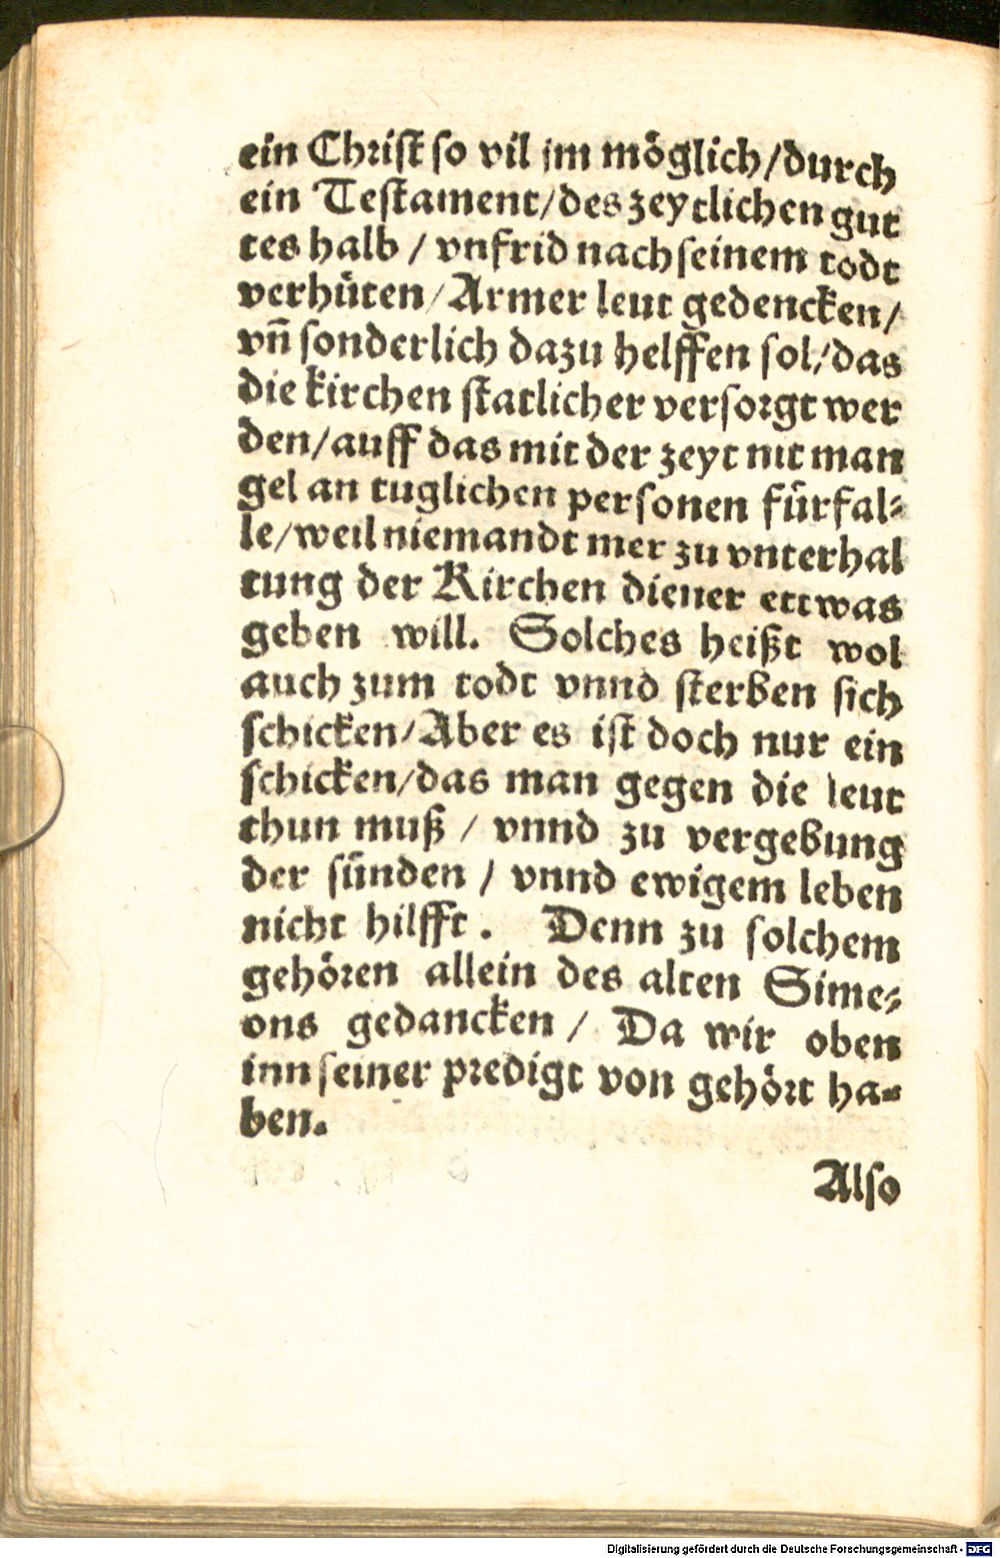 ein Chriſt ſo vil jm möglich/durch
ein Teſtament/des zeytlichen gut
tes halb / vnfrid nach ſeinem todt
verhüten/Armer leut gedencken/
vñ ſonderlich dazu helffen ſol/das
die kirchen ſtatlicher verſorgt wer
den/auff das mit der zeyt nit man
gel an tuglichen perſonen fürfal-
le/weil niemandt mer zu vnterhal
tung der Kirchen diener ettwas
geben will. Solches heißt wol
auch zum todt vnnd ſterben ſich
ſchicken/Aber es iſt doch nur ein
ſchicken/das man gegen die leut
thun muß / vnnd zu vergebung
der ſünden / vnnd ewigem leben
nicht hilfft. Denn zu ſolchem
gehören allein des alten Sime-
ons gedancken / Da wir oben
inn ſeiner predigt von gehört ha-
ben.
Alſo
Digitalisierung gefördert durch die Deutsche Forschungsgemeinschaft - DFG